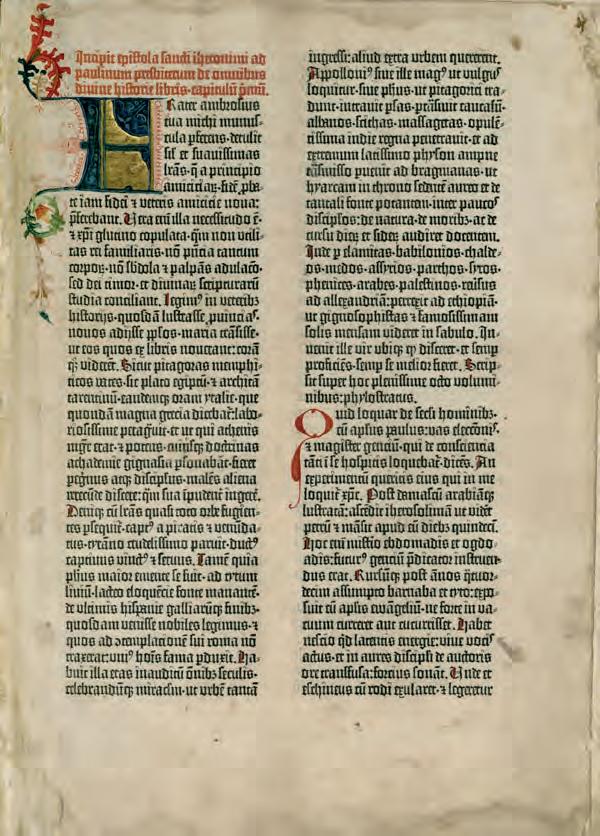 Incipit epistola sancti iheronimi ad
paulinum presbiterum de omnibus
divine historie libris· capitulū pmū.
Frater ambrosius
tua michi munus-
cula pferens· detulit
sil et suavissimas
lrās· q̄ a principio
amiciciaꝝ· fidē pba-
te iam fidei et veteris amicicie nova:
pferebant. Vera enī illa necessitudo ē·
et xpi glutino copulata· qm̄ non vtili-
tas rei familiaris· nō presncia tantum
corporꝫ· nō sbdola et palpās adulacō·
sed dei timor· et divinaꝝ scripturarū
studia conciliant. Legimꝰ in veteribꝫ
historijs· quosdā lustrasse puincias·
novos adijsse pplos· maria trāsisse·
ut eos quos ex libris noverant: corā
qꝫ viderēt. Sicut pitagoras memphi-
ticos vates· sic plato egiptū· et architā
tarentinū· eandemqꝫ oram ytalie· que
quondā magna grecia dicebat̄: labo-
riosissime peragᷓuit· et ut qui athenis
mgr̄ erat· et potens· cuiusqꝫ doctrinas
achademie gignasia psonabāt· fieret
pegrinus atqꝫ discipulus· malēs aliena
verecūde discere: qm̄ sua īpudent̄ ingere.
Deniqꝫ cū lrās quasi toto orbe fugien-
tes psequit̄· captꝰ a piratis et venūda-
tus· tyrāno crudelissimo paruit· ductꝰ
captivus vinctꝰ et servus. Tamē quia
phus maior emente se fuit· ad tytum
liviū· lacteo eloquēcie fonte manantē·
de vltimis hispanie galliarūqꝫ finibꝫ·
quosdam venisse nobiles legimus· et
quos ad ɔtemplacionē sui roma nō
traxerat: uniꝰ hoīs fama pduxit. Ha-
buit illa etas inauditū ōnibꝫ seculis·
celebrandūqꝫ miraclm̄· ut urbē tantā
ingressi: aliud extra urbem quererent.
Appolloniꝰ sive ille magꝰ ut vulgus
loquitur· sive phus· ut pitagorici tra-
dunt· intravit psas· ptrāsivit caucasū·
albanos· scithas· massagetas· opulē-
tissima indie regna penetravit· et ad
extremum latissimo physon ampne
trāsmisso puenit ad bragmanas· ut
hyarcam in throno sedentē aureo et de
tantali fonte potantem· inter paucos
discipulos: de natura· de moribꝫ· ac de
cursu dieꝝ et sideꝝ audiret docentem.
Inde p elamitas· babilonios· chalde-
os· medos· assyrios· parthos· syros·
phenices· arabes· palestinos· reversus
ad allexandriā: perrexit ad ethiopiā·
ut gignosophistas et famosissimam
solis mensam videret in sabulo. In-
venit ille vir ubiqꝫ qd̄ disceret· et semp
proficiēs· semp se melior fieret. Scrip-
sit super hoc plenissime octo volumi-
nibus: phylostratus.
Quid loquar de secli hominibꝫ·
cū aplus paulus: vas electōnis·
et magister genciū· qui de consciencia
tāti ī se hospitis loquebat̄· dices· An
experimentū queritis eius qui in me
loquit̄ xpc. Post damascū arabiāqꝫ
lustratā: ascēdit iherosolimā ut videret
petrū et māsit apud eū diebꝫ quindeci.
Hoc eni misterio ebdomadis et ogdo-
adis: futurꝰ genciū pdicator instruen-
dus erat. Rursūqꝫ post ānos quatuor-
decim assumpto barnaba et tyto: expo-
suit cū aplis evāgeliū· ne forte in va-
cuum curreret aut cucurrisset. Habet
nescio qd̄ latentis energie: vive vocis
actus· et in aures discipli de auctoris
ore transfusa: forcius sonat. Vnde et
eschineus cū rodi exularet· et legeretur